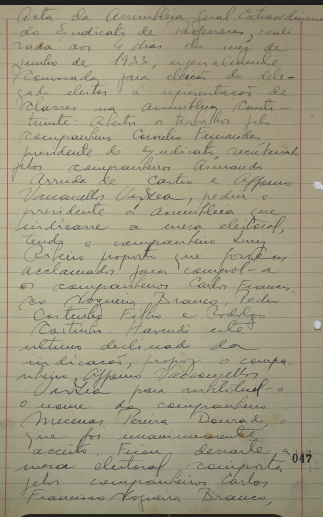 Acta da Assembléa Geral Extraordinaria
do Syndicato de Professores, reali-
zada aos 4 dias do mez de
junho de 1933, especialmente
convocada para eleição do dele-
gado eleitor á representação de
classes na Assembléa Consti-
tuinte: Abertos os trabalhos pelo
companheiro Cornelio Fernandes
presidente do Syndicato, secretariado
pelos companheiros Armando
Arruda de Castro e Affonso
Vasconcellos Varzea, pediu o
presidente á assembléa que
indicasse a mesa eleitoral,
tendo o companheiro Luiz
Ribeiro proposto que fossem
acclamados para compol-a
os companheiros Carlos Francis-
co Nogueira Branco, Pedro
Coutinho Filho e Rodolfo
Coutinho. Havendo este
ultimo declinado da
indicação, propoz o compa-
nheiro Affonso Vasconcellos
Varzea para substituil-o
o nome do companheiro
Mecenas Pereira Dourado, o
que foi unanimemente
acceito. Ficou dessarte a
mesa eleitoral composta
pelos companheiros Carlos
Francisco Nogueira Branco,
047